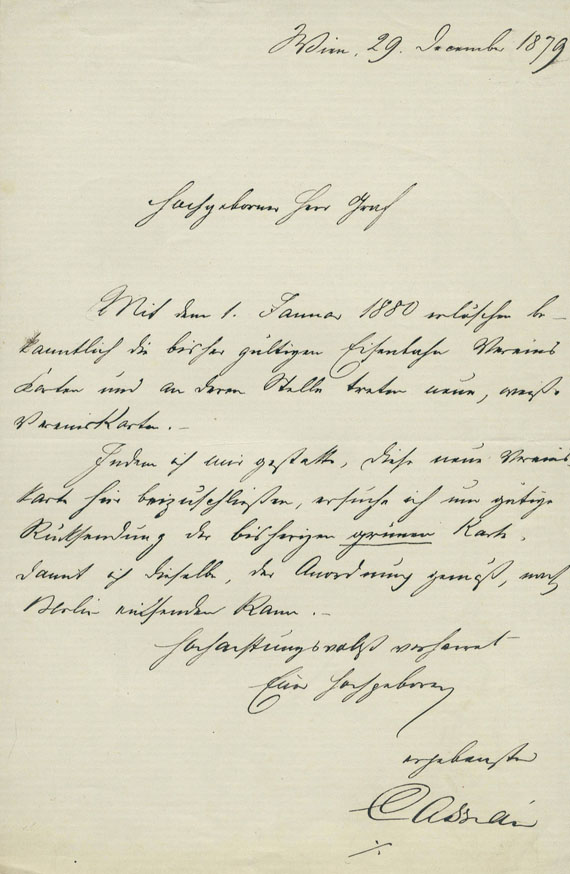 Wien, 29. December 1879
Hochgeborner Herr Graf
Mit dem 1. Januar 1880 erlöschen be-
kanntlich die bisher gültigen Eisenbahn Vereins
Karten und an deren Stelle treten neue, weiße
Vereinskarten.-
Indem ich mir gestatte, diese neue Vereins
karte hier beizuschließen, ersuche ich um gütige
Rücksendung der bisherigen grünen Karte,
damit ich dieselbe, der Anordnung gemäß, nach
Berlin einsenden kann.-
Hochachtungsvollst verharret
Euer Hochgeboren
ergebenster